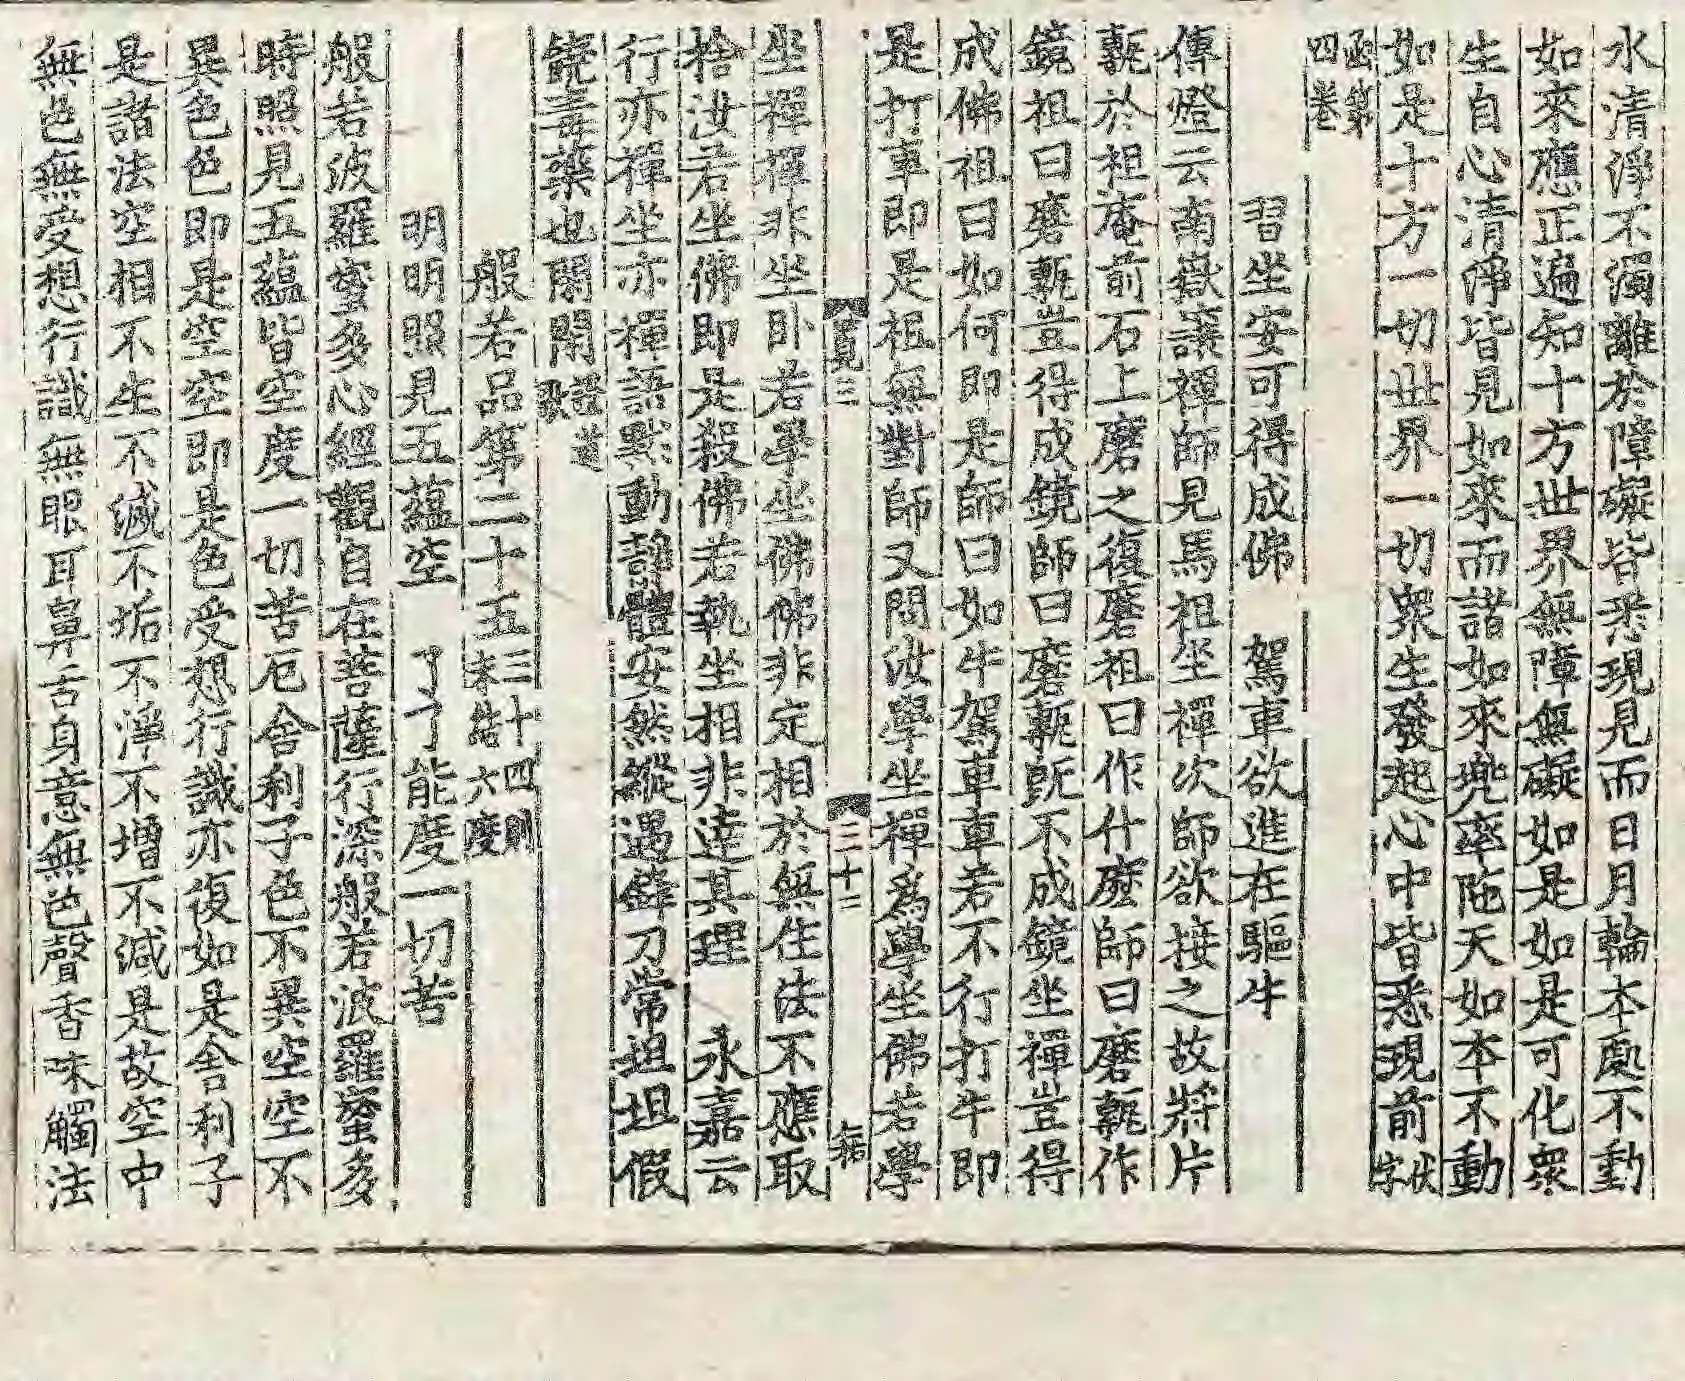 水清淨不濁離於障礙皆悉現見而日月輪本處不動
如來應正遍知十方世界無障無礙如是如是可化衆
生自心清淨皆見如來而諸如來兠率陁天如本不動
如是十方一切世界一切衆生發起心中皆悉現前 狀字
函第
四卷
習坐安可得成佛 駕車欲進在驅牛
傳燈云南嶽讓禪師見馬祖坐禪次師欲接之故將片
甎於祖菴前石上磨之復磨祖曰作什麽師曰磨甎作
鏡祖曰磨甎豈得成鏡師曰磨甎旣不成鏡坐禪豈得
成佛祖曰如何即是師曰如牛駕車車若不行打牛即
是打車即是祖無對師又問汝學坐禪爲學坐佛若學
三
三十二
坐禪禪非坐卧若學坐佛佛非定相於無住法不應取
捨汝若坐佛即是殺佛若執坐相非達其理 永嘉云
行亦禪坐亦禪語默動静體安然縱遇鋒刀常坦坦假
饒毒藥也閑閑 證道歌
般若品第二十五 三十四則
末結六度
明明照見五蘊空 了了能度一切苦
般若波羅蜜多心經觀自在菩薩行深般若波羅蜜多
時照見五蘊皆空度一切苦厄舍利子色不異空空不
異色色即是空空即是色受想行識亦復如是舍利子
是諸法空相不生不滅不垢不淨不增不減是故空中
無色無受想行識無眼耳鼻舌身意無色聲香味觸法